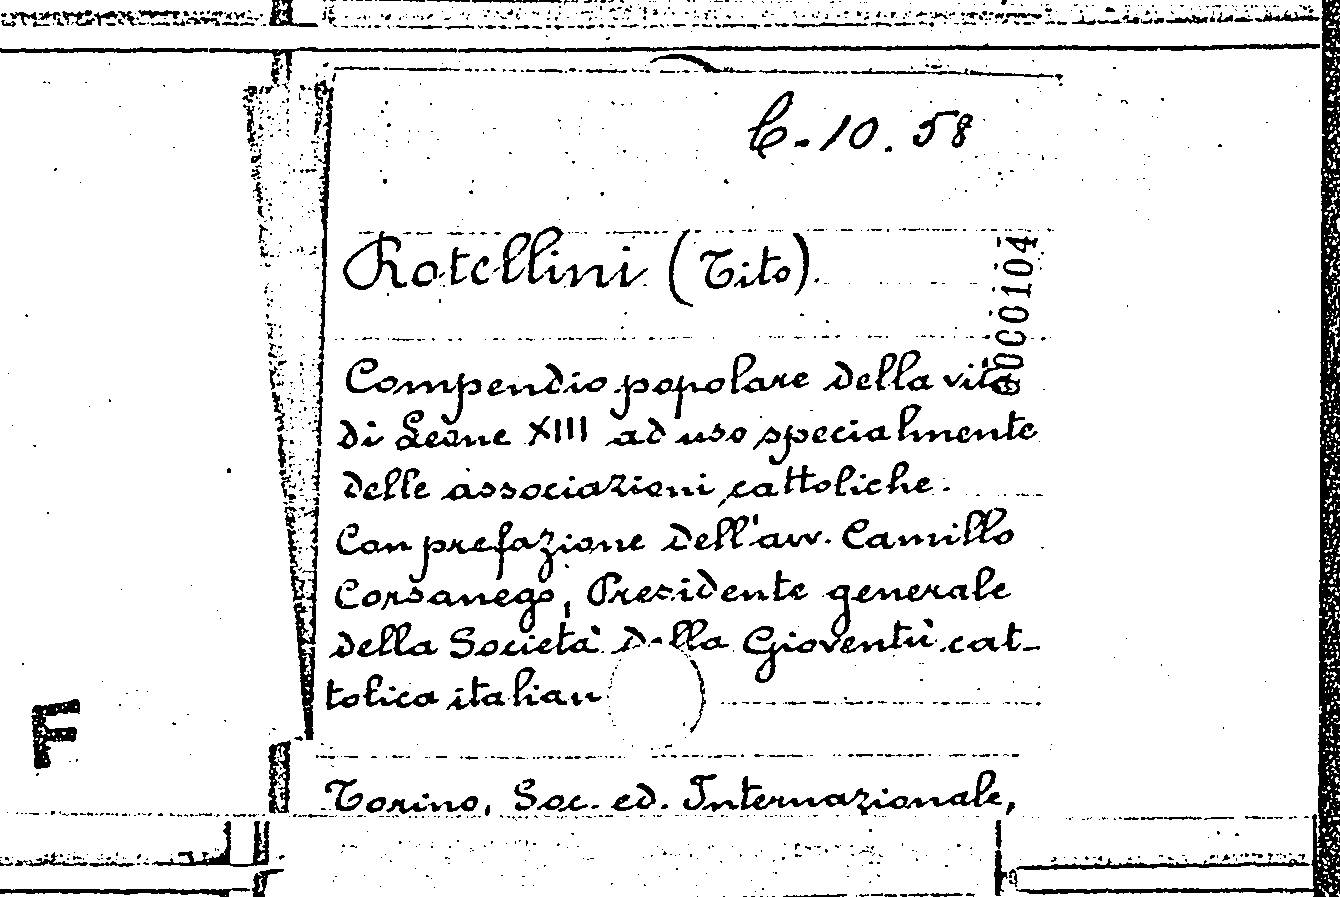 C.10.58
Rotellini (Tito).
0000104
Compendio popolare della vita
di Leone XIII ad uso specialmente
delle associazioni cattoliche.
Con prefazione dell'avv. Camillo
Corsanego, Presidente generale
della Società della Gioventù cat-
tolica italian
Torino, Soc. ed. Internazionale,
F